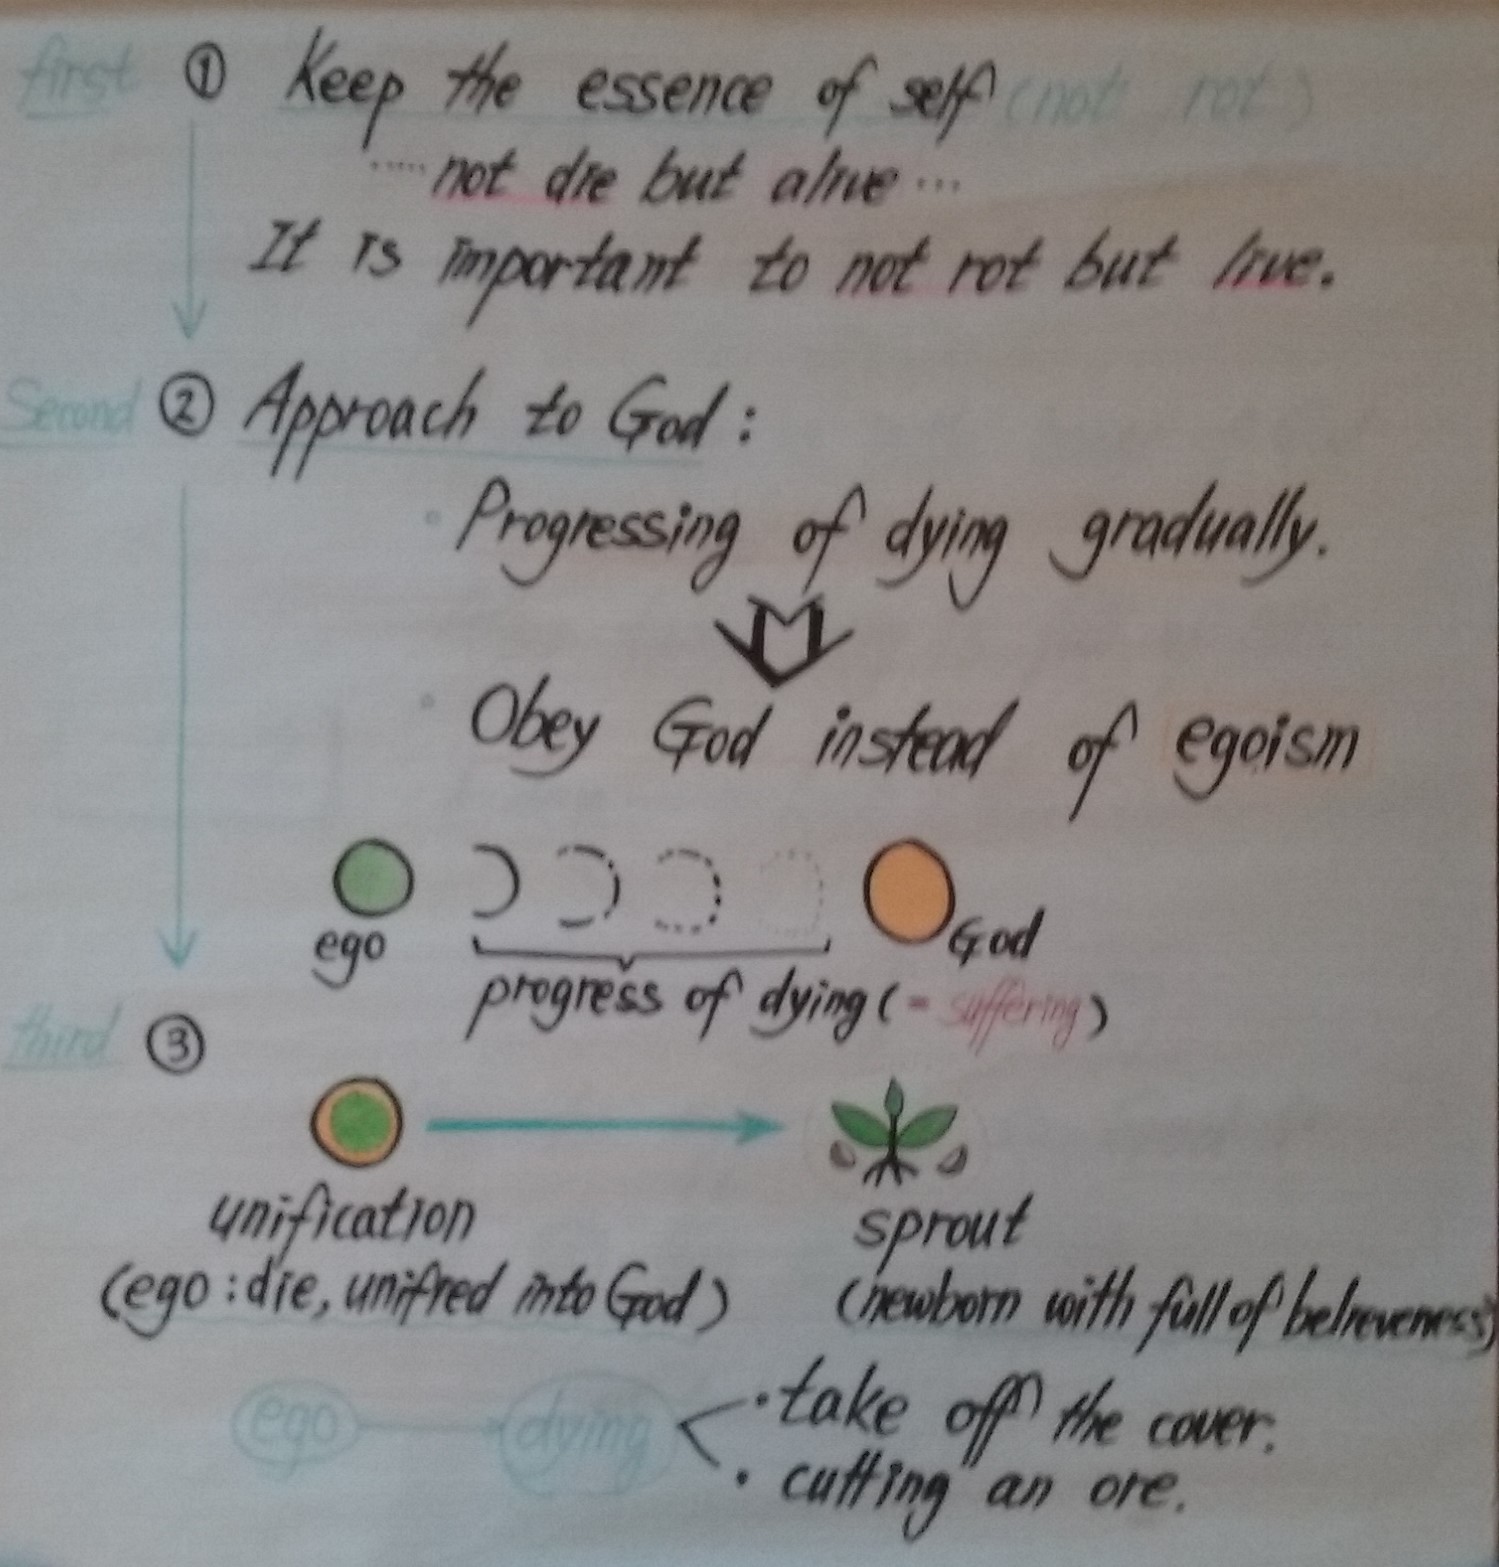 first ① Keep the essence of self (not rot)
..... not die but alive ...
It is important to not rot but live.
Second ② Approach to God:
Progressing of dying gradually.
Obey God instead of egoism
ego
God
progress of dying (= suffering)
third ③
unification
sprout
(ego : die, unified into God)
(newborn with full of believeness)
ego dying
· take off the cover.
· cutting an ore.